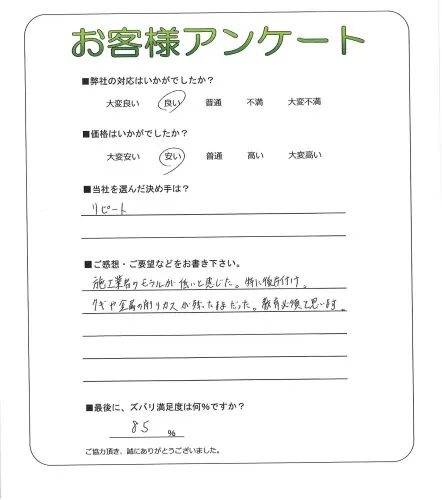 お客様アンケート
■弊社の対応はいかがでしたか？
大変良い 良い 普通 不満 大変不満
■価格はいかがでしたか？
大変安い 安い 普通 高い 大変高い
■当社を選んだ決め手は？
リピート
■ご感想・ご要望などをお書き下さい。
施工業者のモラルが低いと感じた。特に後片付け。
クギや金属の削りカスが残ったままだった。教育必須と思います。
■最後に、ズバリ満足度は何％ですか？
85 %
ご協力頂き、誠にありがとうございました。